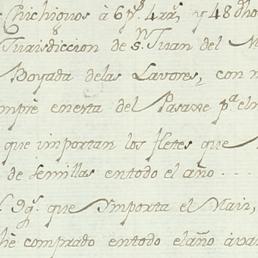 Chichiguos à 6 p.s 4 rr.s y 48 dho
Jurisdiccion de S.n Juan del
Boyada delas Lavores, con
mpré enesta del Pasage p.a el
que importan los fletes que
de semillas entodo el año
que Importa el Maiz,
hé comprado entodo el año à va